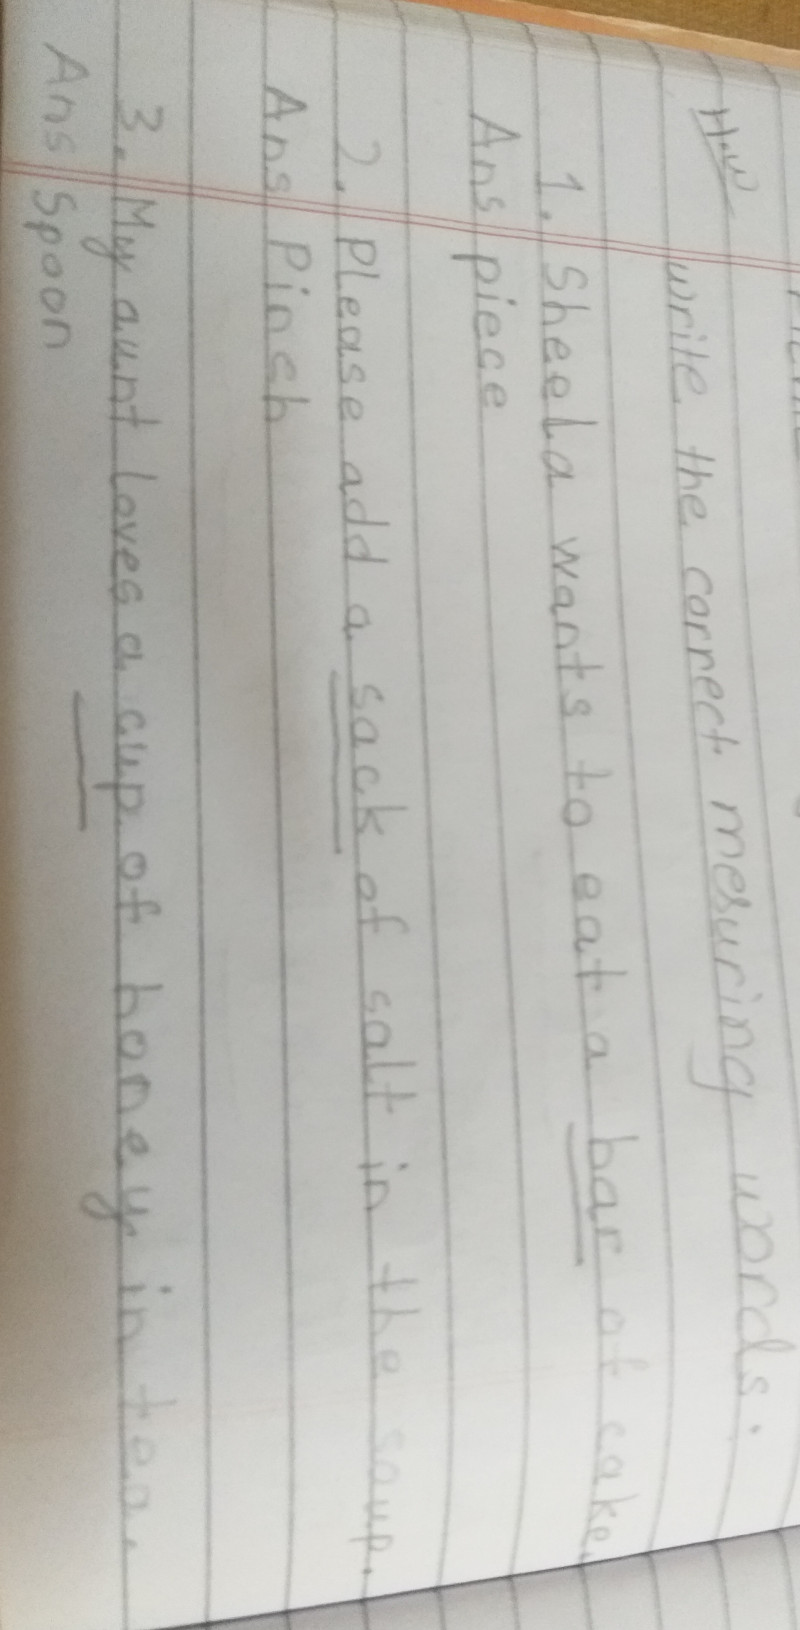 H.W
write the correct mesuring words.
1. Sheela wants to eat a bar of cake.
Ans piece
2. Please add a sack of salt in the soup.
Ans Pinch
3. My aunt loves a cup of honey in tea.
Ans Spoon